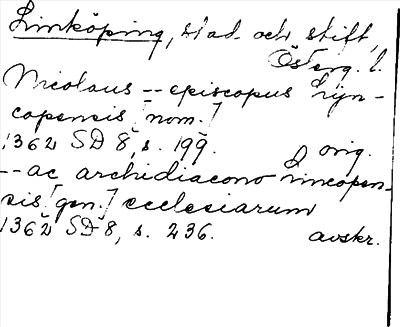 Linköping, stad och stift,
Österg. l.
Nicolaus -- episcopus Lyn-
copensis [nom.]
1362 SD 8, s. 199. orig.
-- ac archidiacono Lincopen-
sis [gen.] ecclesiarum
1362 SD 8, s. 236. avskr.